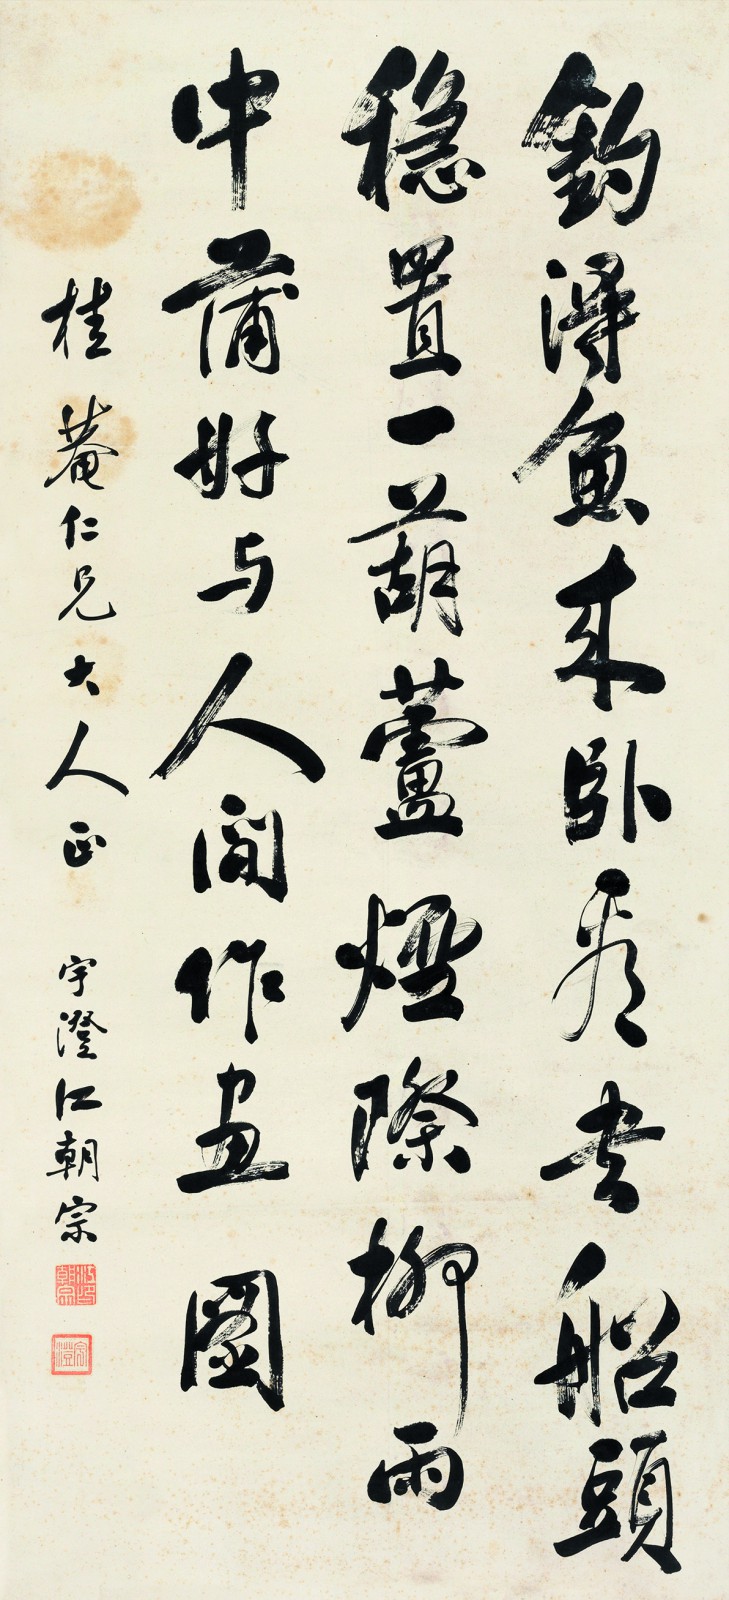 釣得魚來臥看書船頭
穩置一葫蘆煙際柳雨
中蒲好与人間作畫圖
桂菴仁兄大人正 宇澄江朝宗
江朝宗印
宇澄